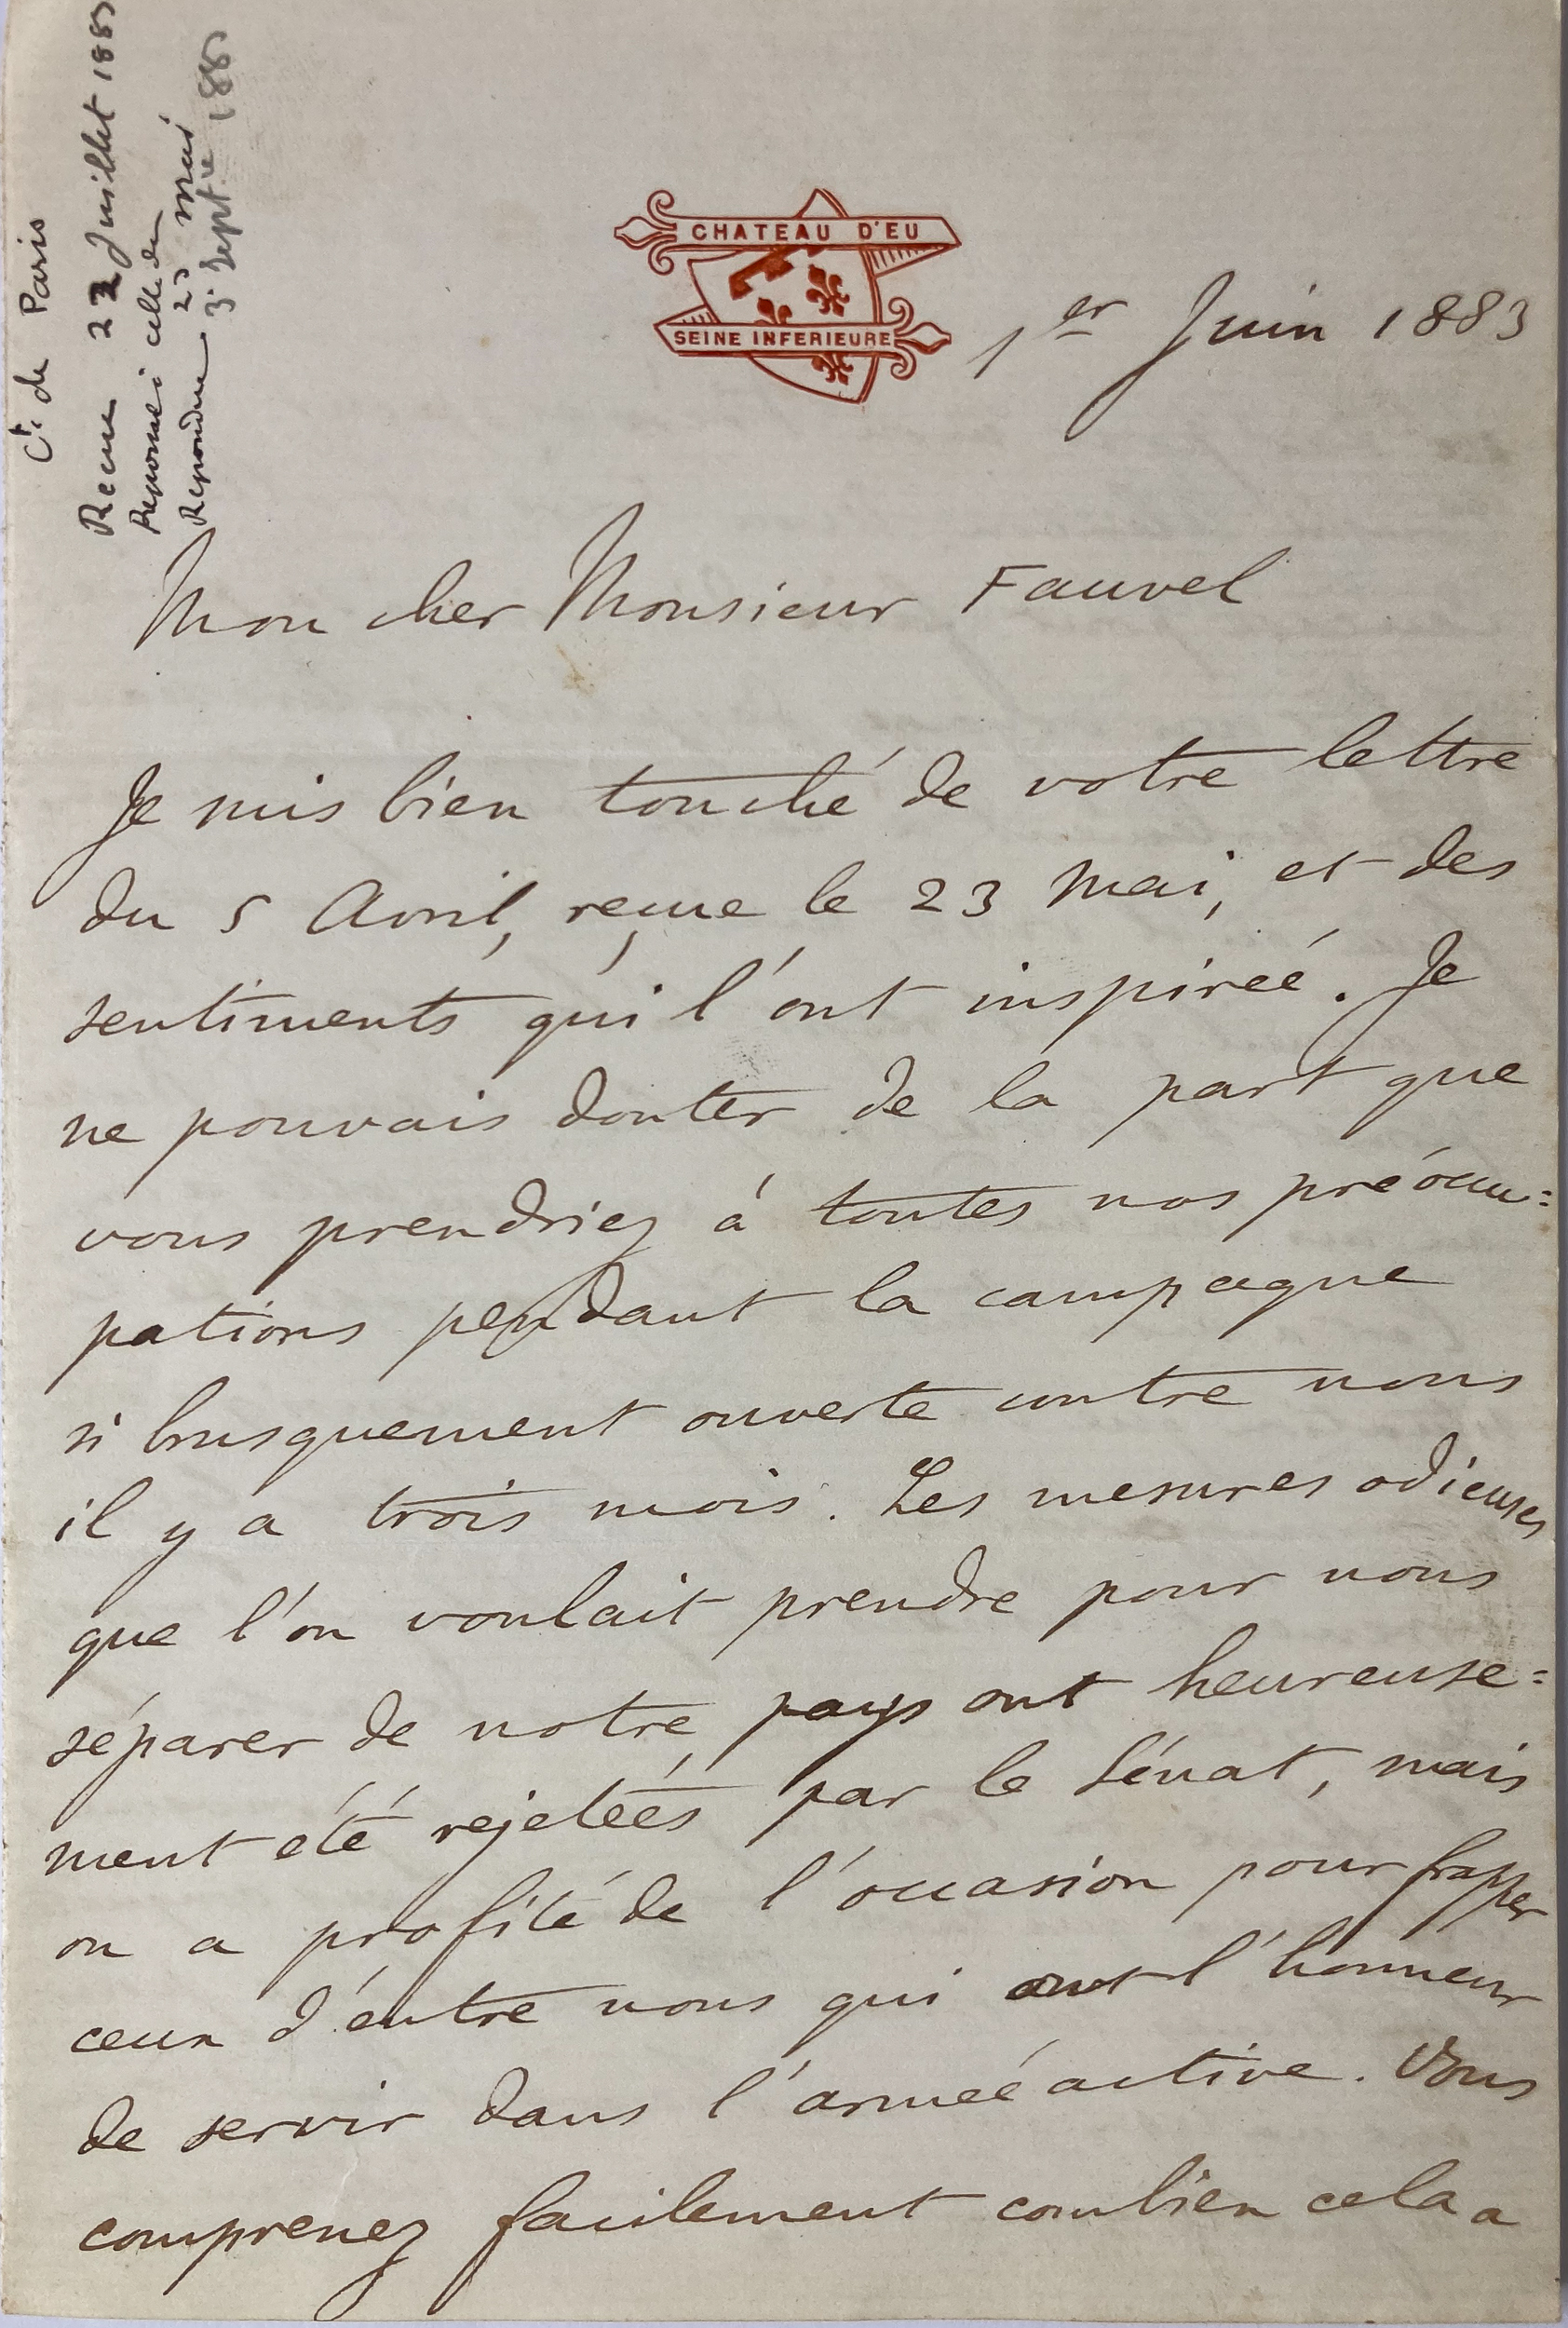 Cte de Paris
Recue 22 Juillet 1883
celle du
23 mai
Repondu 3 Septre 1883
CHATEAU D'EU
SEINE INFERIEURE
1er Juin 1883
Mon cher Monsieur Fauvel
Je suis bien touché de votre lettre
du 5 Avril, reçue le 23 Mai, et des
sentiments qui l'ont inspirée. Je
ne pouvais douter de la part que
vous prendriez à toutes nos préoccu=
pations pendant la campagne
si brusquement ouverte contre nous
il y a trois mois. Les mesures odieuses
que l'on voulait prendre pour nous
séparer de notre pays ont heureuse=
ment été rejetées par le Sénat, mais
on a profité de l'occasion pour frapper
ceux d'entre nous qui ont l'honneur
de servir dans l'armée active. Vous
comprenez facilement combien cela a